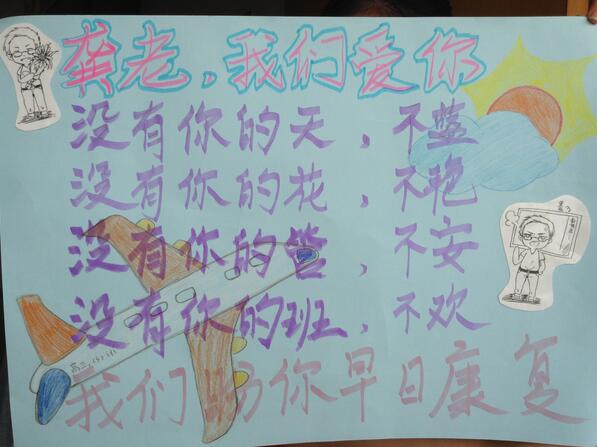 龚老，我们爱你
没有你的天，不蓝
没有你的花，不艳
没有你的管，不安
没有你的班，不欢
我们助你早日康复